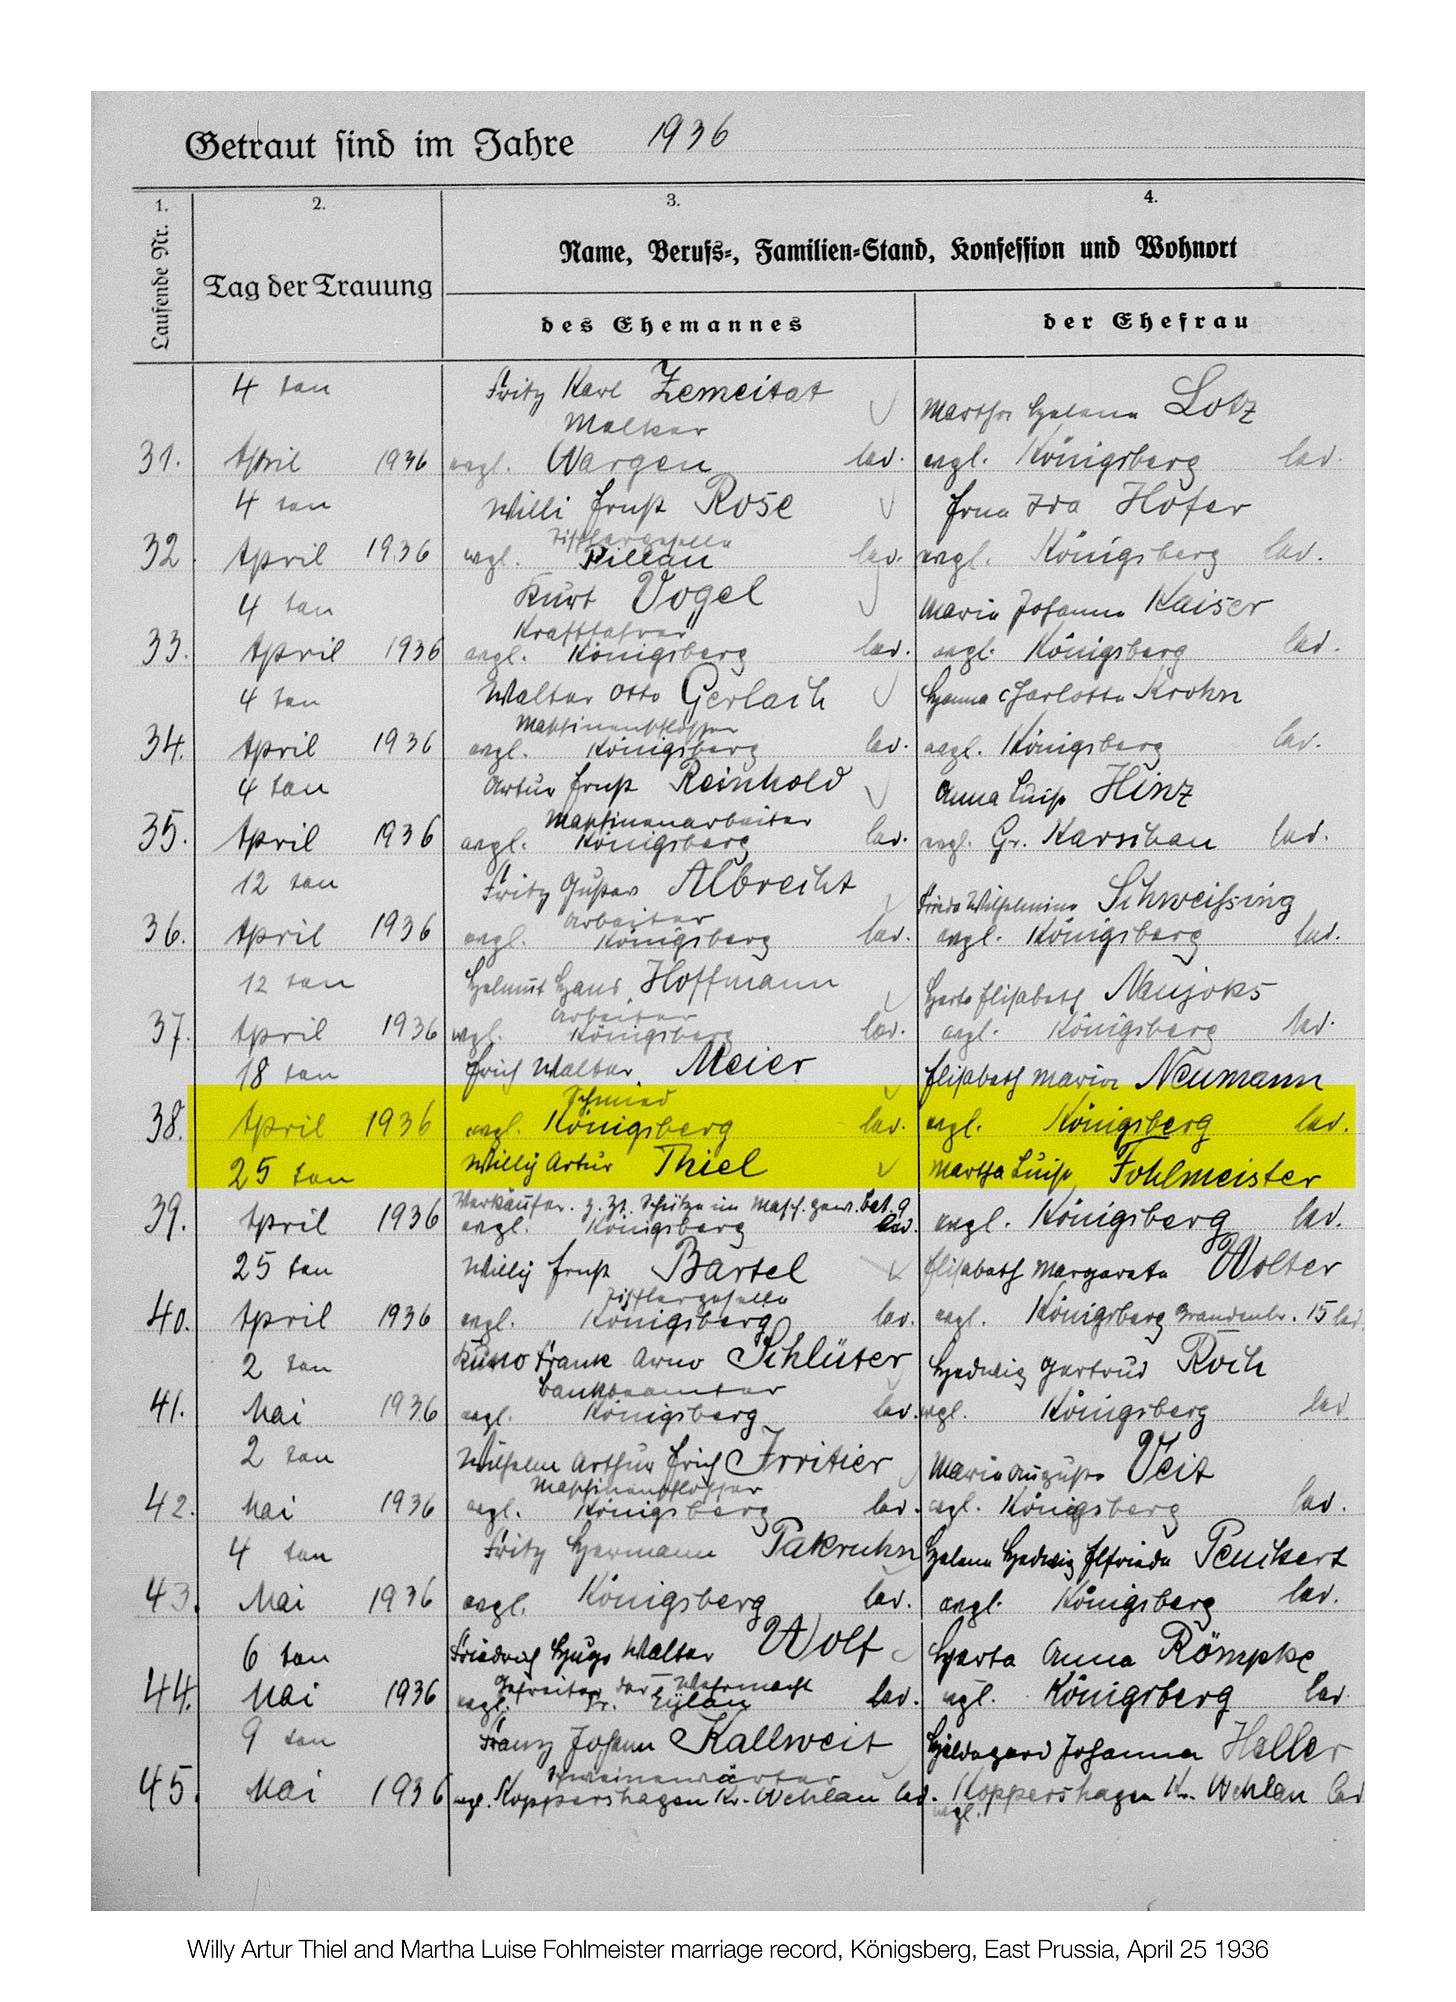 Getraut sind im Jahre 1936
1. 2. 3. 4.
Laufende Nr.
Tag der Trauung
Name, Berufs-, Familien-Stand, Konfession und Wohnort
des Ehemannes
der Ehefrau
4 ten Fritz Karl Zemeitat Martha Helene Lotz
Melker
31. April 1936 evgl. Wargen led. evgl. Königsberg led.
4 ten Willi Ernst Rose Erna Ida Hofer
Tischlergeselle
32. April 1936 evgl. Pillau led. evgl. Königsberg led.
4 ten Kurt Vogel Maria Johanna Kaiser
Kraftfahrer
33. April 1936 evgl. Königsberg led. evgl. Königsberg led.
4 ten Walter Otto Gerlach Hanna Charlotte Krohn
Maschinenschlosser
34. April 1936 evgl. Königsberg led. evgl. Königsberg led.
4 ten Artur Ernst Reinhold Anna Luise Hinz
Maschinenarbeiter
35. April 1936 evgl. Königsberg led. evgl. Gr. Karschau led.
12 ten Fritz Gustav Albrecht Frieda Wilhelmine Schweissing
Arbeiter
36. April 1936 evgl. Königsberg led. evgl. Königsberg led.
12 ten Helmut Hans Hoffmann Herta Elisabeth Naujoks
Arbeiter
37. April 1936 evgl. Königsberg led. evgl. Königsberg led.
18 ten Erich Walter Meier Elisabeth Maria Neumann
Schmied
38. April 1936 evgl. Königsberg led. evgl. Königsberg led.
25 ten Willy Artur Thiel Martha Luise Fohlmeister
Verkäufer. z. Zt. Schütze im Masch. gew. Bat. 9
39. April 1936 evgl. Königsberg led. evgl. Königsberg led.
25 ten Willy Ernst Bartel Elisabeth Margarete Wolter
Tischlergeselle
40. April 1936 evgl. Königsberg led. evgl. Königsberg Brandenbr. 15 led.
2 ten Kuno Frank Arno Schlüter Hedwig Gertrud Koch
Bankbeamter
41. Mai 1936 evgl. Königsberg led. evgl. Königsberg led.
2 ten Wilhelm Arthur Erich Irritier Maria Auguste Veit
Maschinenschlosser
42. Mai 1936 evgl. Königsberg led. evgl. Königsberg led.
4 ten Fritz Hermann Pakruhn Helene Hedwig Elfriede
43. Mai 1936 evgl. Königsberg led. evgl. Königsberg led.
6 ten Friedrich Hugo Walter Wolf Herta Anna Römpke
Gefreiter der Wehrmacht
44. Mai 1936 evgl. Dr. Eylau led. evgl. Königsberg led.
9 ten Franz Johann Kallweit Hildegard Johanna Heller
Schweinewärter
45. Mai 1936 evgl. Koppershagen Kr. Wehlau led. Koppershagen Kr. Wehlau led.
evgl.
Willy Artur Thiel and Martha Luise Fohlmeister marriage record, Königsberg, East Prussia, April 25 1936